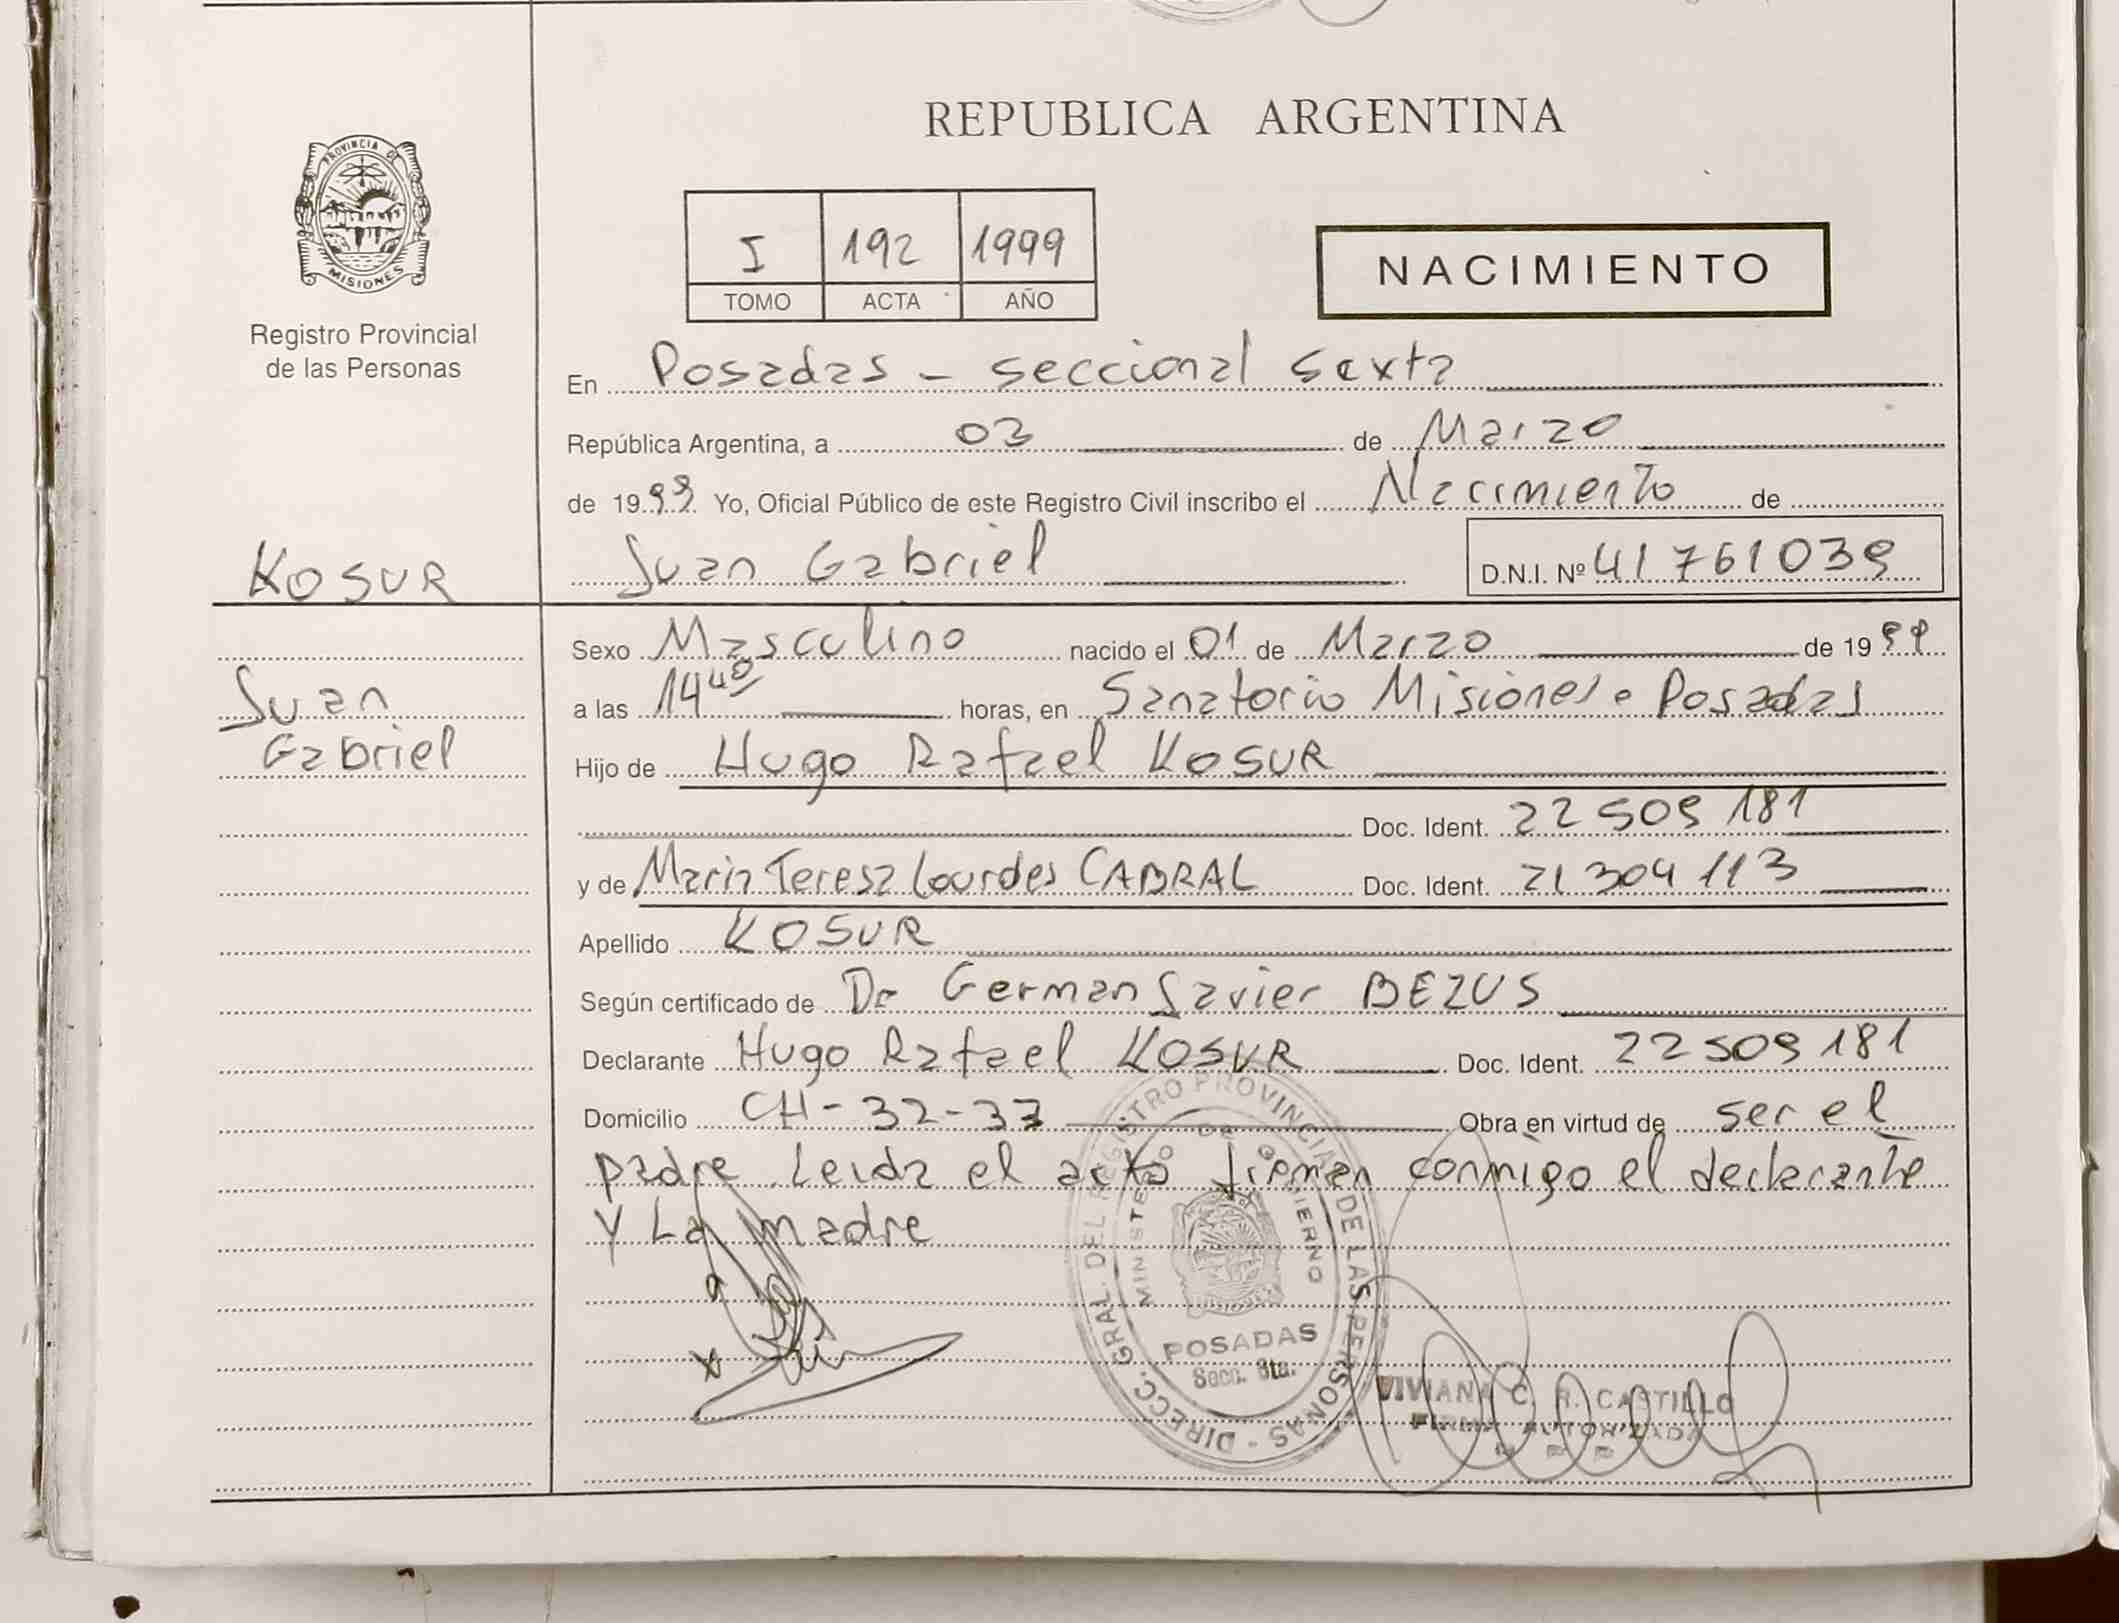 REPUBLICA ARGENTINA
PROVINCIA DE
MISIONES
Registro Provincial
de las Personas
I 192 1999
TOMO ACTA AÑO
NACIMIENTO
En Posadas - seccional sexta
República Argentina, a 03 de Marzo
de 1999 Yo, Oficial Público de este Registro Civil inscribo el Nacimiento de
KOSUR
Juan Gabriel D.N.I. Nº 41 761 039
Sexo Masculino nacido el 01 de Marzo de 1999
Juan
Gabriel
a las 14 40 horas, en Sanatorio Misiones - Posadas
Hijo de Hugo Rafael KOSUR
Doc. Ident. 22 509 181
y de Maria Teresa Lourdes CABRAL Doc. Ident. 21 304 113
Apellido KOSUR
Según certificado de Dr German Javier BEZUS
Declarante Hugo Rafael KOSUR Doc. Ident. 22 509 181
Domicilio CH - 32 - 37 Obra en virtud de ser el
padre. Leida el acta firman conmigo el declarante
y La madre
DIRECC. GRAL. DEL REGISTRO PROVINCIAL DE LAS PERSONAS
MINISTERIO DE GOBIERNO
POSADAS
Secc. 6ta.
VIVIANA C. R. CASTILLO
FIRMA AUTORIZADA